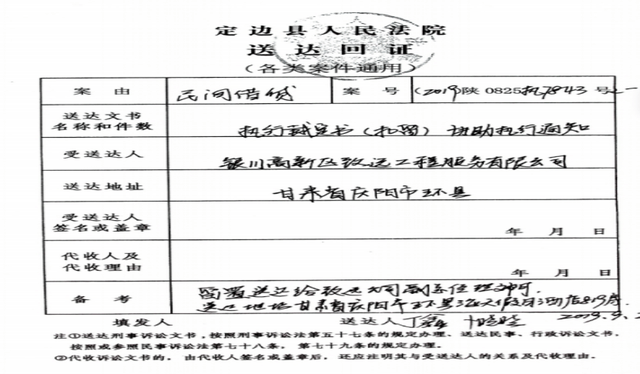 定边县人民法院
送达回证
（各类案件通用）
案由 民间借贷 案号 (2019)陕0825执7843号之一
送达文书名称和件数 执行裁定书（扣留）协助执行通知
受送达人 银川高新区致远工程服务有限公司
送达地址 甘肃省庆阳市环县
受送达人签名或盖章 年 月 日
代收人及代收理由 年 月 日
备考 留置送达给致远公司副总经理
送达地址甘肃省庆阳市环县
填发人 送达人 2019.9.2
注①送达刑事诉讼文书，按照刑事诉讼法第五十七条的规定办理。送达民事、行政诉讼文书，
按照或参照民事诉讼法第七十八条，第七十九条的规定办理。
②代收诉讼文书的，由代收人签名或盖章后，还应注明其与受送达人的关系及代收理由。